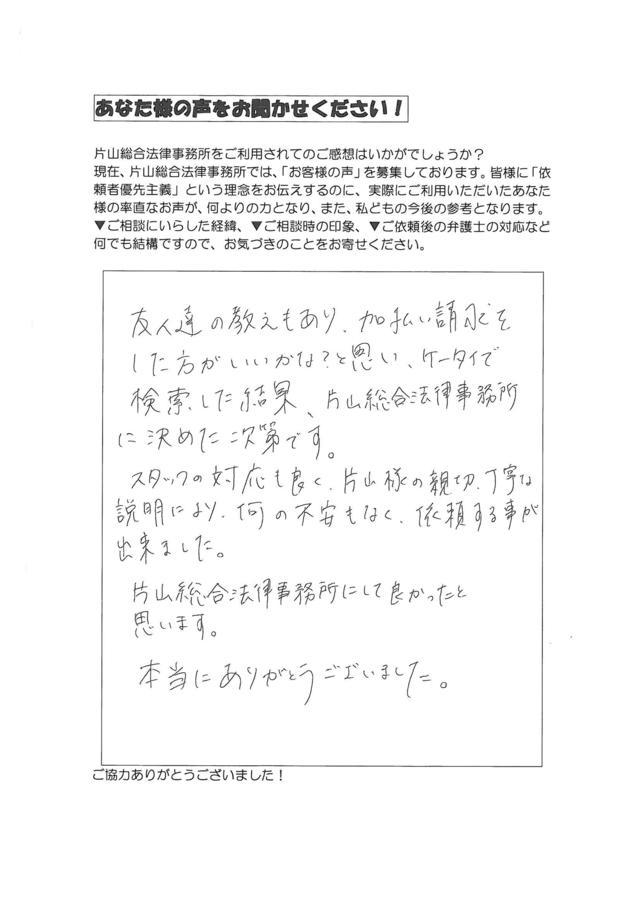 あなた様の声をお聞かせください！
片山総合法律事務所をご利用されてのご感想はいかがでしょうか？
現在、片山総合法律事務所では、「お客様の声」を募集しております。皆様に「依
頼者優先主義」という理念をお伝えするのに、実際にご利用いただいたあなた
様の率直なお声が、何よりの力となり、また、私どもの今後の参考となります。
▼ご相談にいらした経緯、▼ご相談時の印象、▼ご依頼後の弁護士の対応など
何でも結構ですので、お気づきのことをお寄せください。
友人達の教えもあり、加払い請求を
した方がいいかな？と思い、ケータイで
検索した結果、片山総合法律事務所
に決めた次第です。
スタッフの対応も良く、片山様の親切、丁寧な
説明により、何の不安もなく、依頼する事が
出来ました。
片山総合法律事務所にして良かったと
思います。
本当にありがとうございました。
ご協力ありがとうございました！